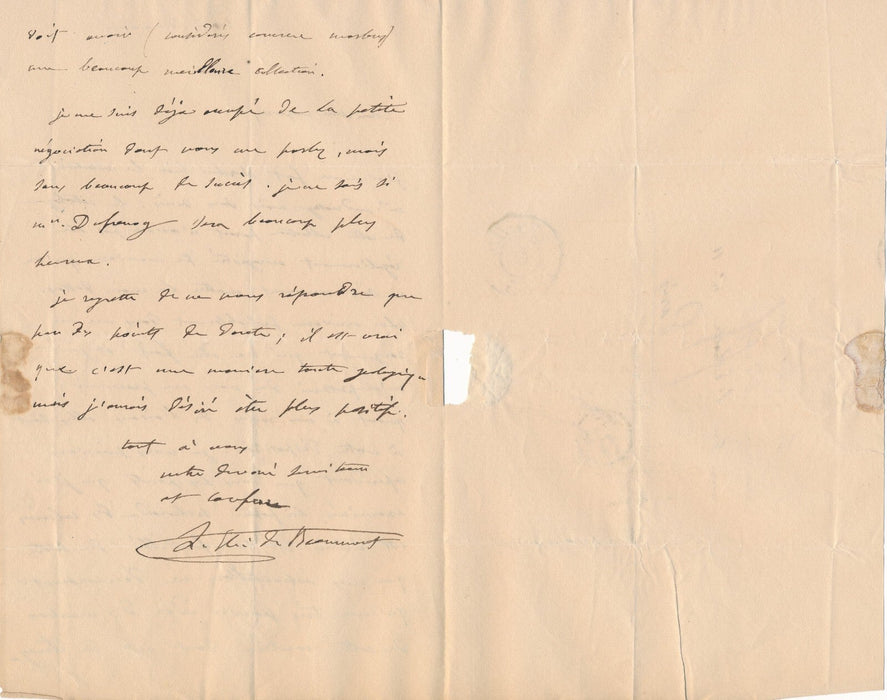 doit avoir (
une beaucoup meilleure collection.
je me suis déja occupé de la petite
négociation dont vous me parlez, mais
sans beaucoup de succès. je ne sais si
mr. Dufrenoy sera beaucoup plus
heureux.
je regrette de ne vous répondre que
par des points de doute; il est vrai
que c'est une maniere toute géologique
mais j'aurais désiré être plus positif.
tout à vous
votre dévoué serviteur
et confrere
L. Élie de Beaumont